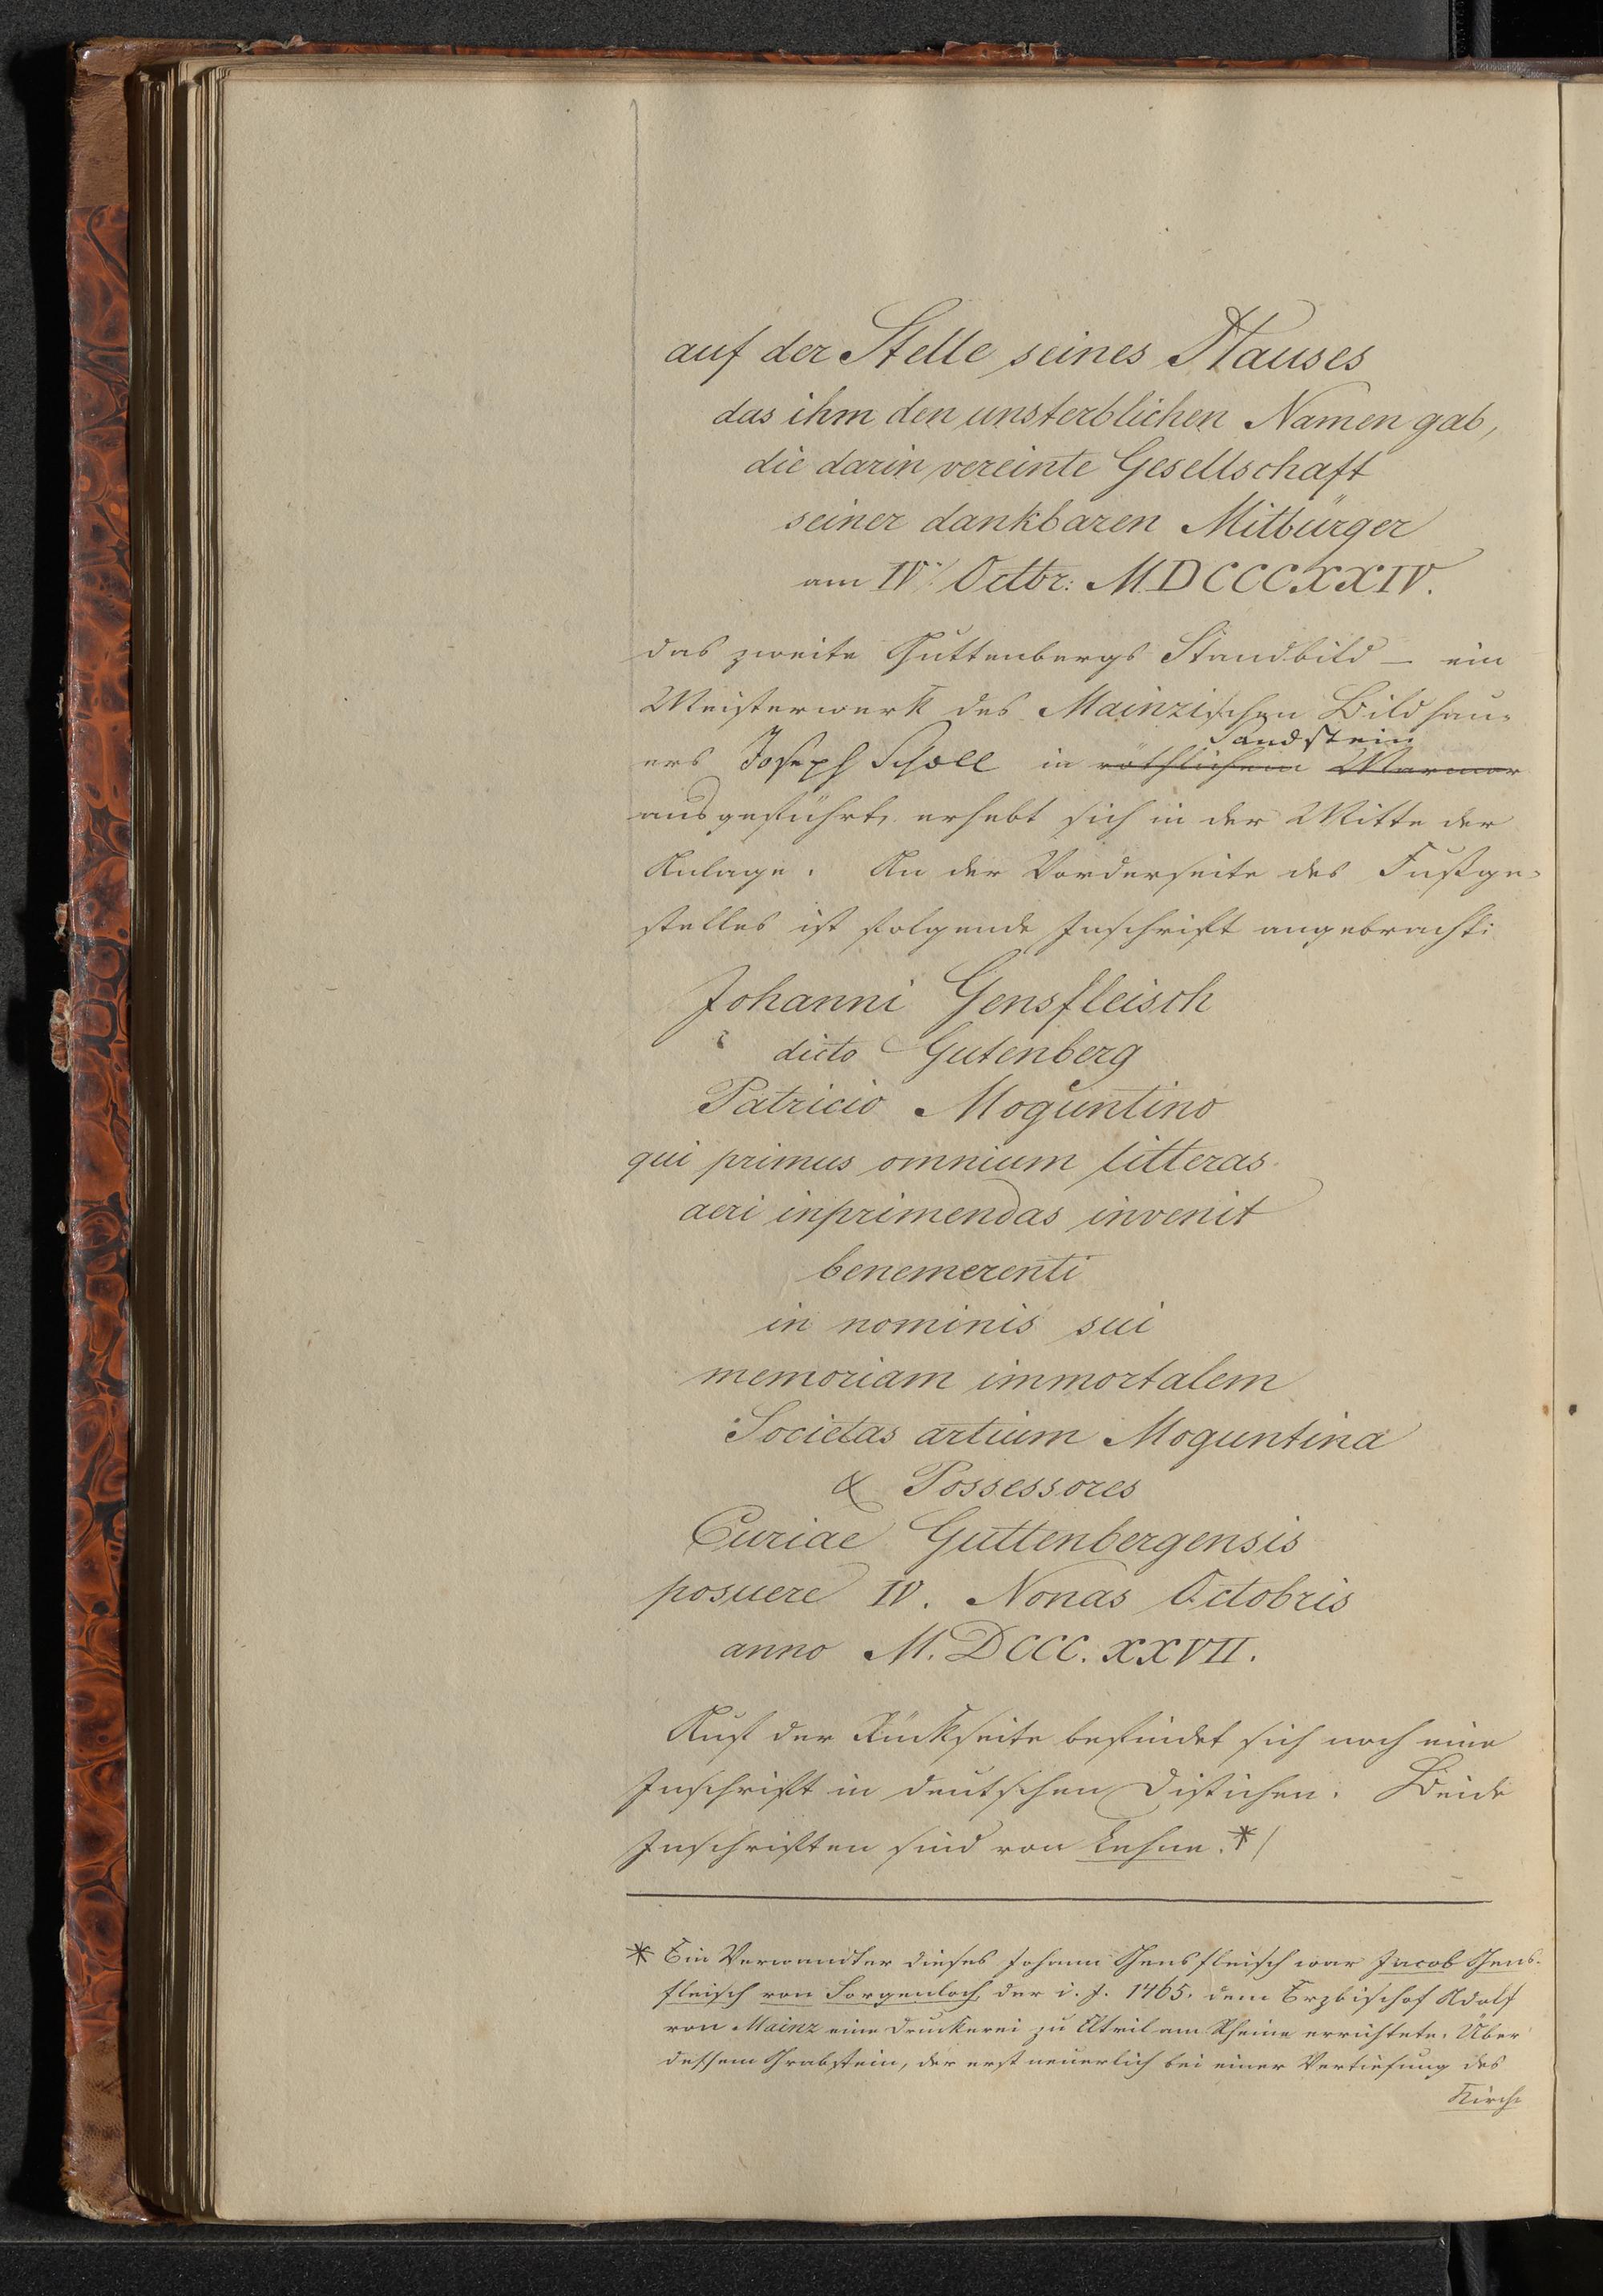 auf der Stelle seines Hauses
das ihm den unsterblichen Namen gab,
die darin vereinte Gesellschaft
seiner dankbaren Mitbürger
am IV: Octbr: MDCCCXXIV.
das zweite Guttenbergs Standbild – ein
Meisterwerk des Mainzischen Bildhau-
Sandstein
ers Joseph Scholl in röthlichem Marmor
ausgeführt, erhebt sich in der Mitte der
Anlage. An der Vorderseite des Fußge-
stelles ist folgende Inschrift angebracht:
Johanni Gensfleisch
dicto Gutenberg
Patricio Moguntino
qui primus omnium litteras
aeri inprimendas invenit
benemerenti
in nominis sui
memoriam immortalem
Societas artium Moguntina
& Possessores
Curiae Guttenbergensis
posuere IV. Nonas Octobris
anno M.DCCC.XXVII.
Auf der Rückseite befindet sich noch eine
Inschrift in deutschen Distichen. Beide
Inschriften sind von Lehne.*/
* Ein Verwandter dieses Johann Gensfleisch war Jacob Gens-
fleisch von Sorgenloch, der i. J. 1465. dem Erzbischof Adolf
von Mainz eine Druckerei zu Altvil am Rheine errichtete. Über
dessem Grabstein, der erst neuerlich bei einer Vertiefung des
Kirch-